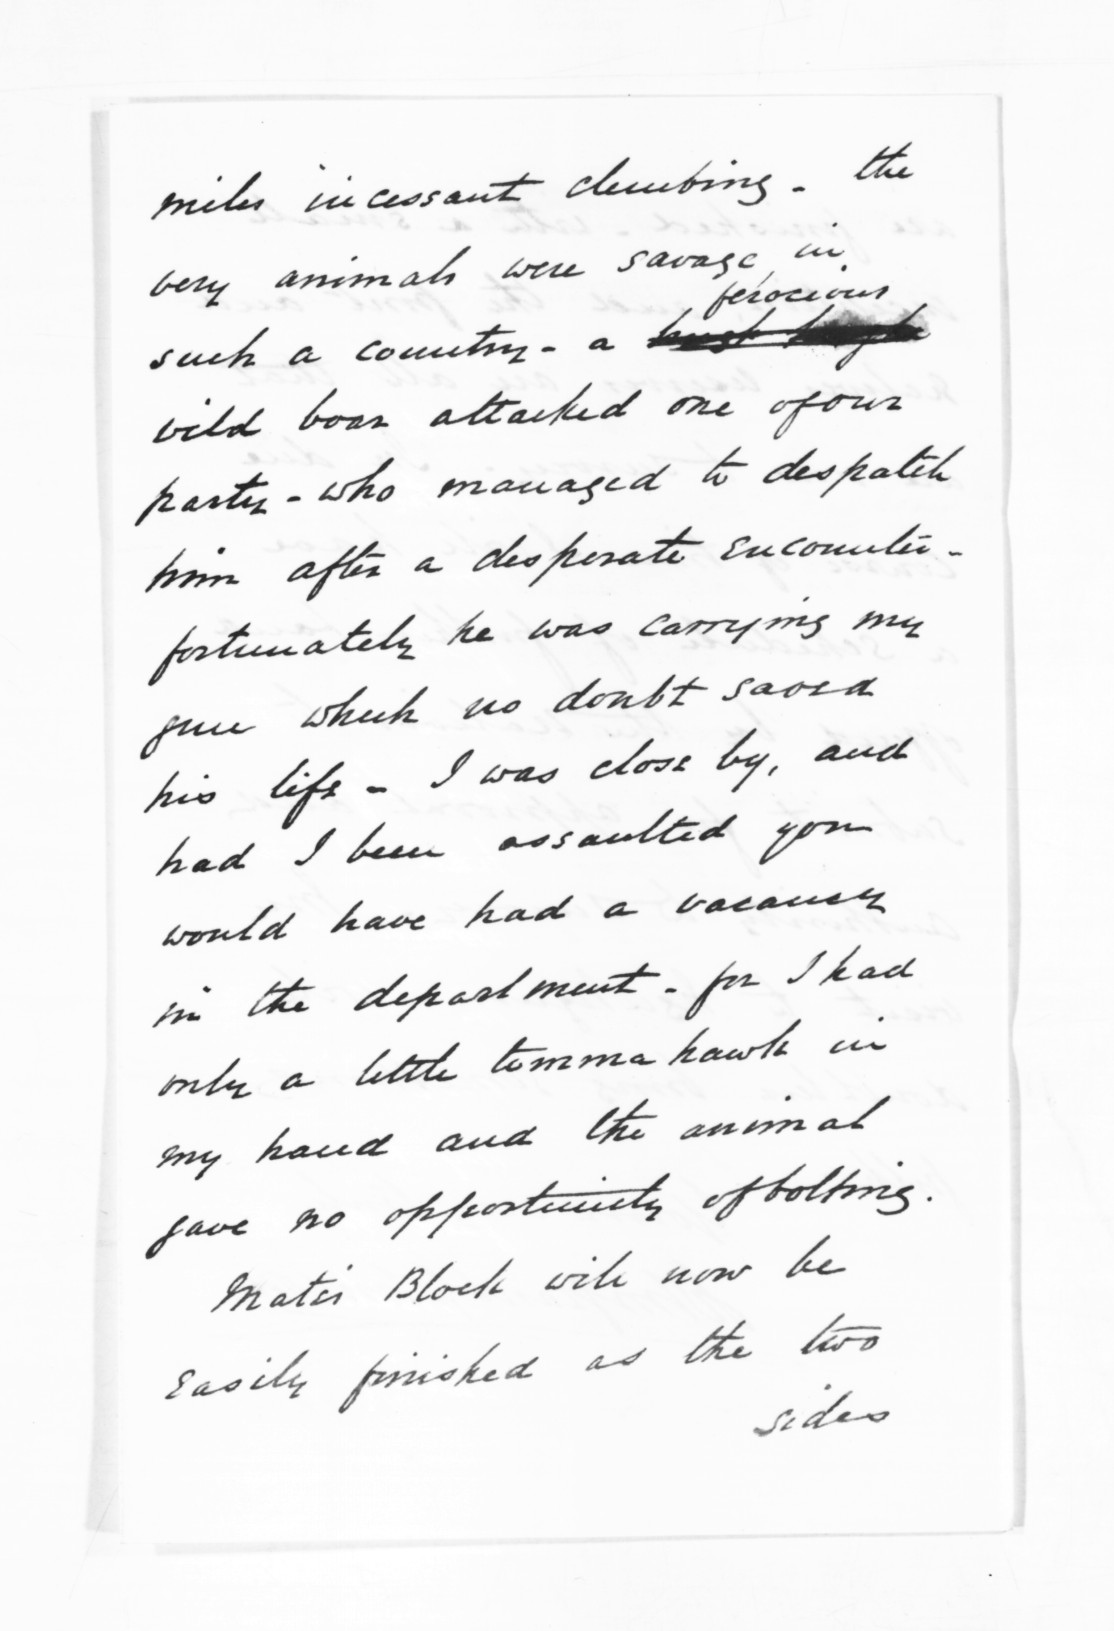 miles incessant climbing - the
very animals were savage in
ferocious
such a country - a
wild boar attacked one of our
party - who managed to despatch
him after a desperate encounter -
fortunately he was carrying my
gun which no doubt saved
his life - I was close by, and
had I been assaulted you
would have had a vacancy
in the department - for I had
only a little tommahawk in
my hand and the animal
gave no opportunity of bolting.
Block will now be
easily finished as the two
sides